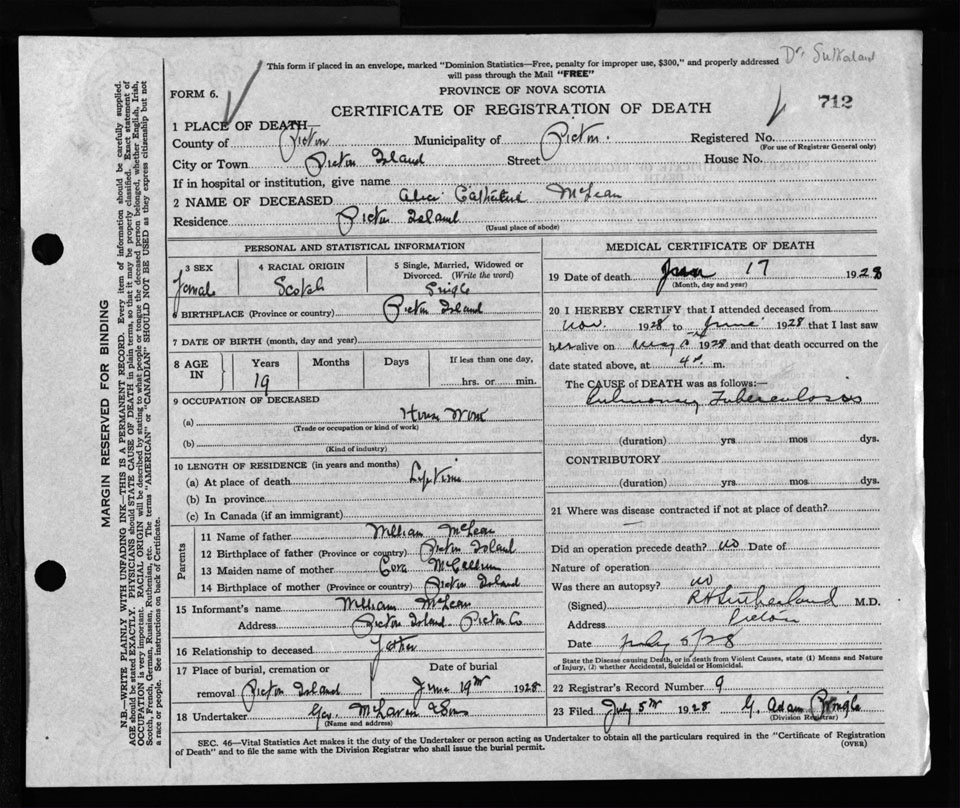 Dr Sutherland
This form if placed in an envelope, marked "Dominion Statistics—Free, penalty for improper use, $300," and properly addressed
will pass through the Mail "FREE"
FORM 6.
PROVINCE OF NOVA SCOTIA
712
CERTIFICATE OF REGISTRATION OF DEATH
1 PLACE OF DEATH—
County of Pictou Municipality of Pictou. Registered No.
(For use of Registrar General only)
City or Town Pictou Island Street House No.
If in hospital or institution, give name
2 NAME OF DECEASED Alice Catherine McLean
Residence Pictou Island
(Usual place of abode)
PERSONAL AND STATISTICAL INFORMATION
3 SEX 4 RACIAL ORIGIN 5 Single, Married, Widowed or
Divorced. (Write the word)
Female Scotch Single
6 BIRTHPLACE (Province or country) Pictou Island
7 DATE OF BIRTH (month, day and year)
8 AGE IN Years Months Days If less than one day,
19 hrs. or min.
9 OCCUPATION OF DECEASED
(a) House Work
(Trade or occupation or kind of work)
(b)
(Kind of industry)
10 LENGTH OF RESIDENCE (in years and months)
(a) At place of death Life Time
(b) In province
(c) In Canada (if an immigrant)
Parents
11 Name of father William McLean
12 Birthplace of father (Province or country) Pictou Island
13 Maiden name of mother Cora McCallum
14 Birthplace of mother (Province or country) Pictou Island
15 Informant's name William McLean
Address Pictou Island Pictou Co
16 Relationship to deceased Father
17 Place of burial, cremation or Date of burial
removal Pictou Island June 19th 1928
18 Undertaker Geo. McLaren & Sons
(Name and address)
MEDICAL CERTIFICATE OF DEATH
19 Date of death June 17 1928
(Month, day and year)
20 I HEREBY CERTIFY that I attended deceased from
Nov. 1928 to June 1928 that I last saw
her alive on May 1928 and that death occurred on the
date stated above, at 4 m.
The CAUSE of DEATH was as follows:—
Pulmonary Tuberculosis
(duration) yrs. mos. dys.
CONTRIBUTORY
(duration) yrs. mos. dys.
21 Where was disease contracted if not at place of death?
Did an operation precede death? no Date of
Nature of operation
Was there an autopsy? no
(Signed) R H Sutherland M.D.
Address Pictou
Date July 5/28
State the Disease causing Death, or in death from Violent Causes, state (1) Means and Nature
of Injury, (2) whether Accidental, Suicidal or Homicidal.
22 Registrar's Record Number 9
23 Filed July 5th 1928 G. Adam Pringle
(Division Registrar)
SEC. 46—Vital Statistics Act makes it the duty of the Undertaker or person acting as Undertaker to obtain all the particulars required in the "Certificate of Registration
of Death" and to file the same with the Division Registrar who shall issue the burial permit. (OVER)
MARGIN RESERVED FOR BINDING
N.B.—WRITE PLAINLY WITH UNFADING INK—THIS IS A PERMANENT RECORD. Every item of information should be carefully supplied.
AGE should be stated EXACTLY. PHYSICIANS should STATE CAUSE OF DEATH in plain terms, so that it may be properly classified. Exact statement of
OCCUPATION is very important. RACIAL ORIGIN will be described by stating to what people or tongue the deceased person belonged, whether English, Irish,
Scotch, French, German, Russian, Ruthenian, etc. The terms "AMERICAN" or "CANADIAN" SHOULD NOT BE USED as they express citizenship but not
a race or people. See instructions on back of Certificate.